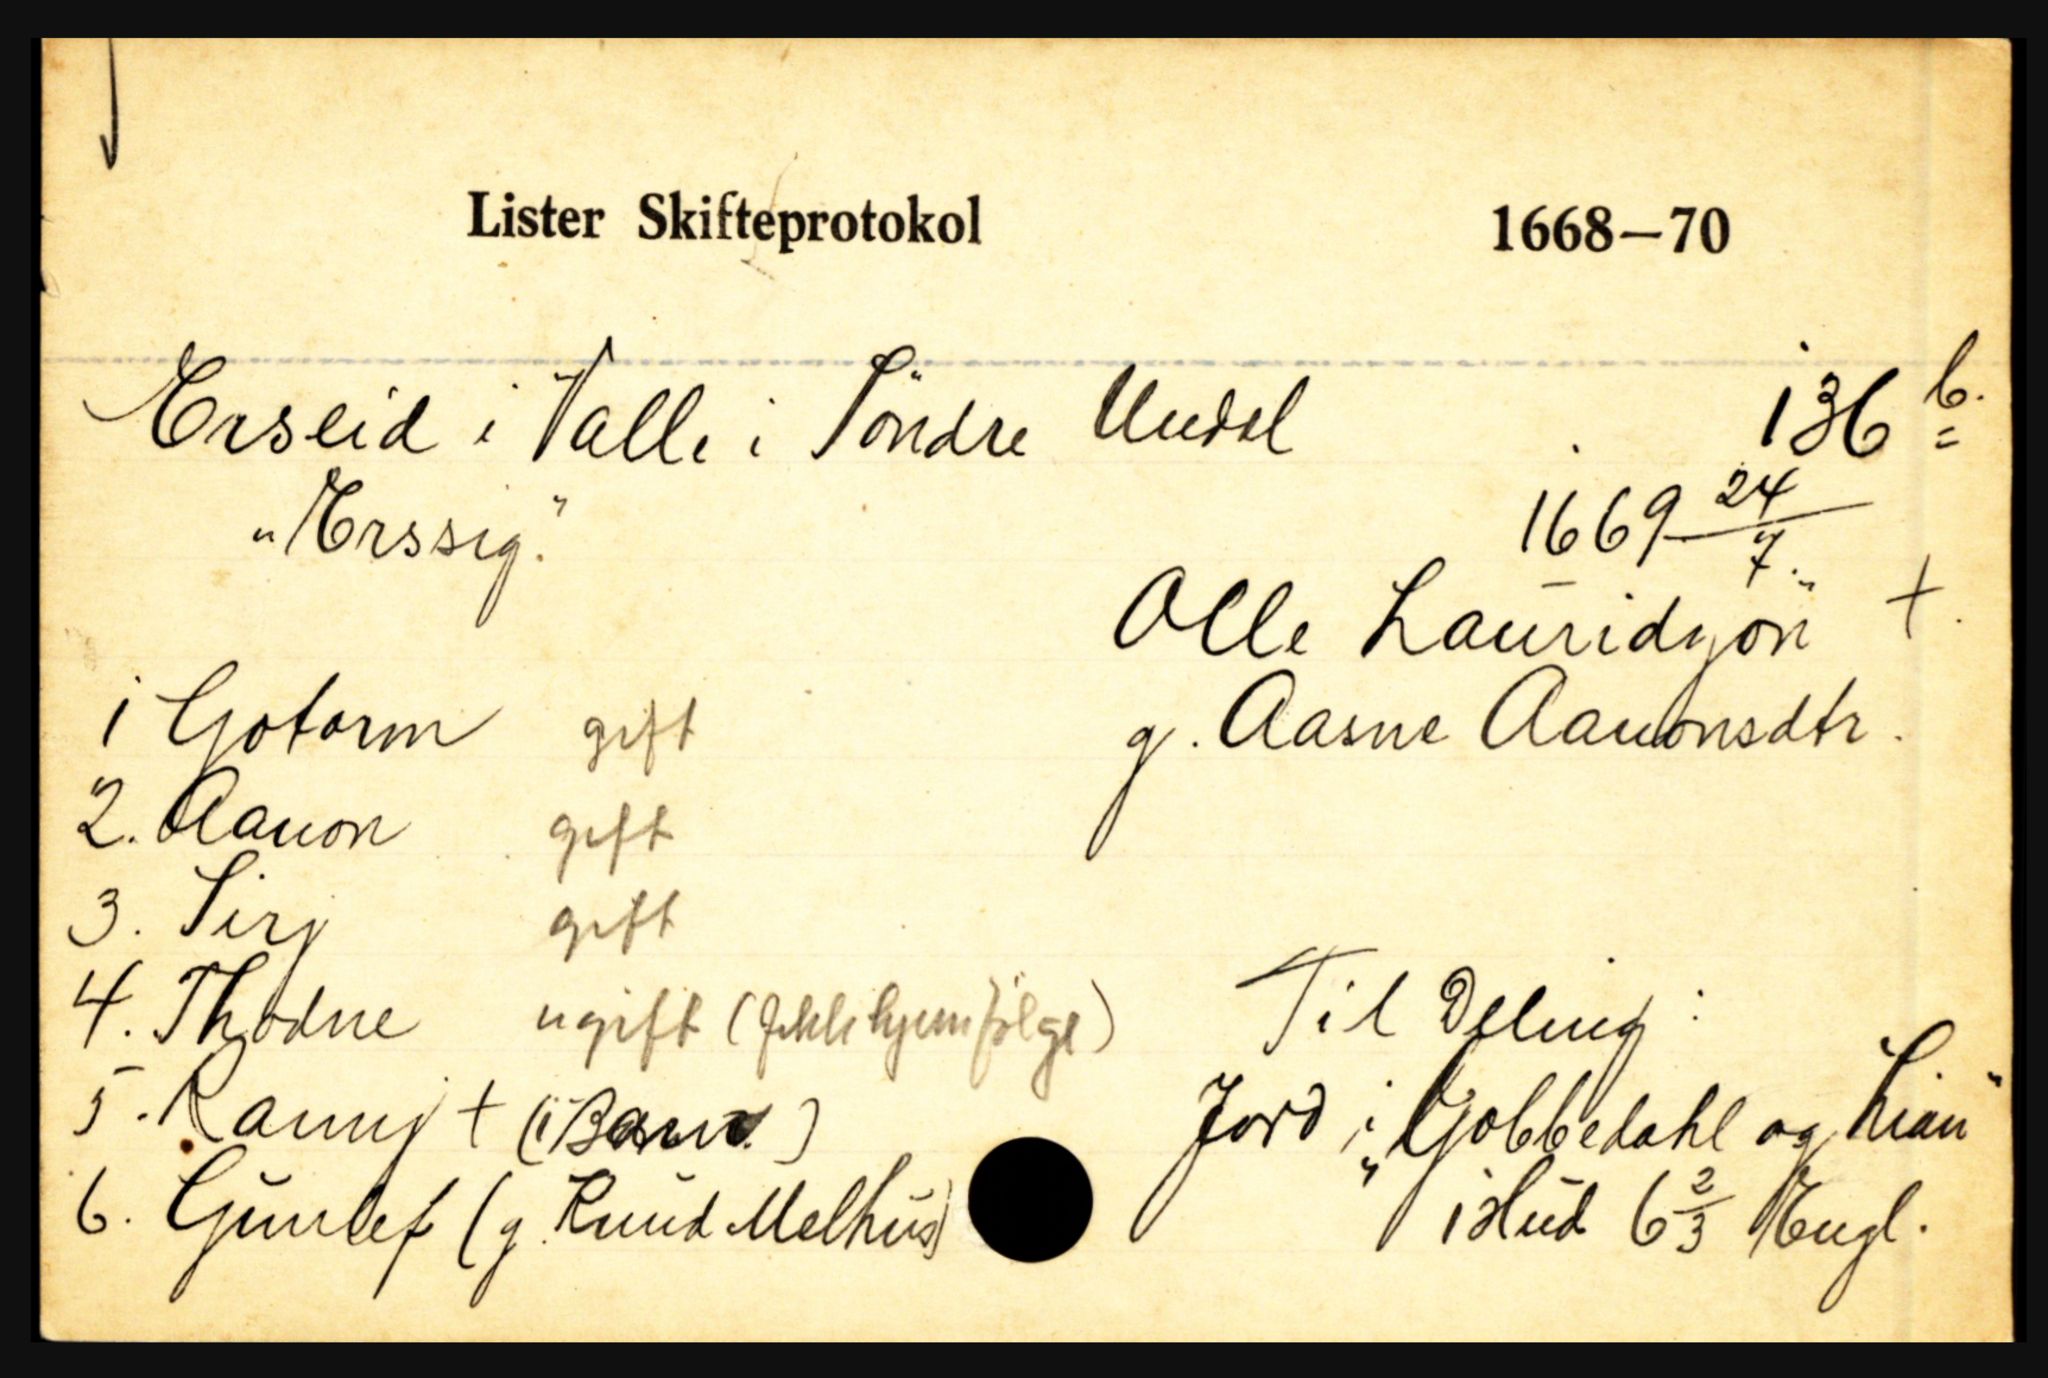 Lister Skifteprotokol 1668—70
Erseid i Valle i Söndre Undal 136 b.
"Erssig." 1669 24/7.
Olle Lauridzön +.
1 Gotorm gift g. Aasne Aanonsdtr.
2. Aanon gift
3. Sirj gift
4. Thodne ugift (fikk hjemfölge) Til Deling:
5. Rannj + (1 Barn.) Jord i "Gobbedahl og Lian"
6. Gunlef (g. Knud Melhus) 1 Hud 6 2/3 Engl.